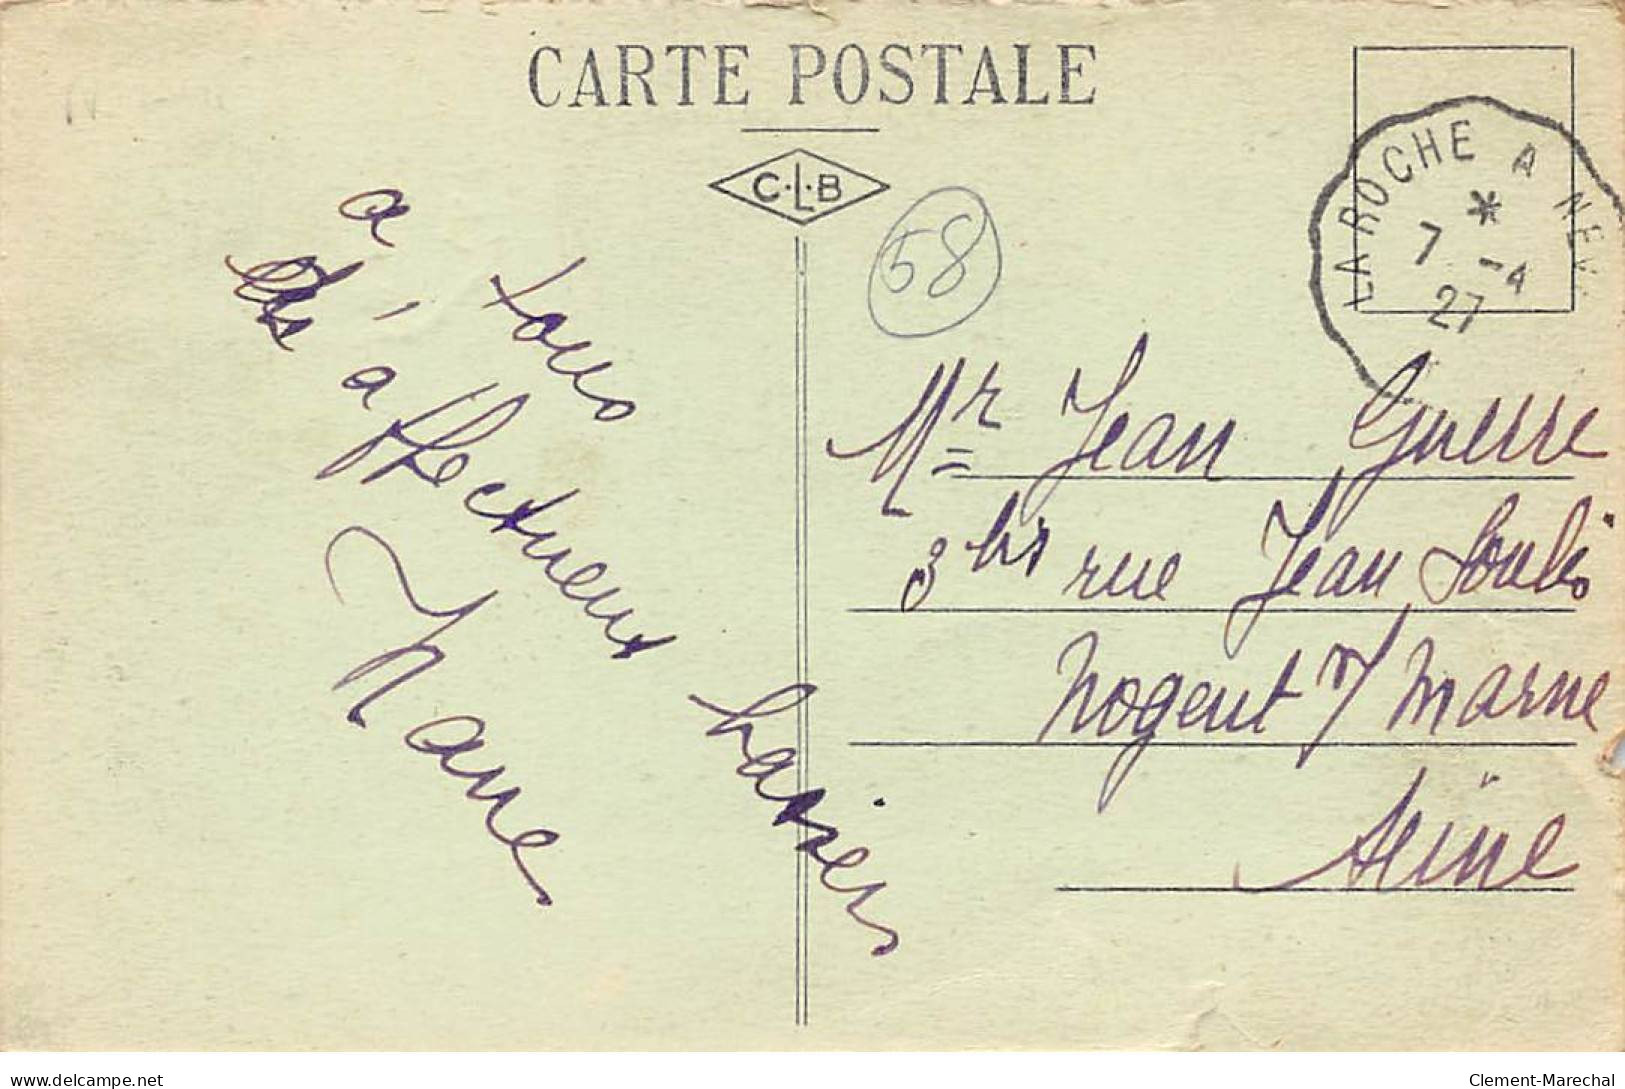 CARTE POSTALE
C.L.B
58
LAROCHE A NEV
*
7 -4
27
a tous
d'affectueux baisers
Mr Jean Guerre
3 bis rue Jean Soulès
Nogent s/ Marne
Seine
delcampe.net
Clement-Marechal